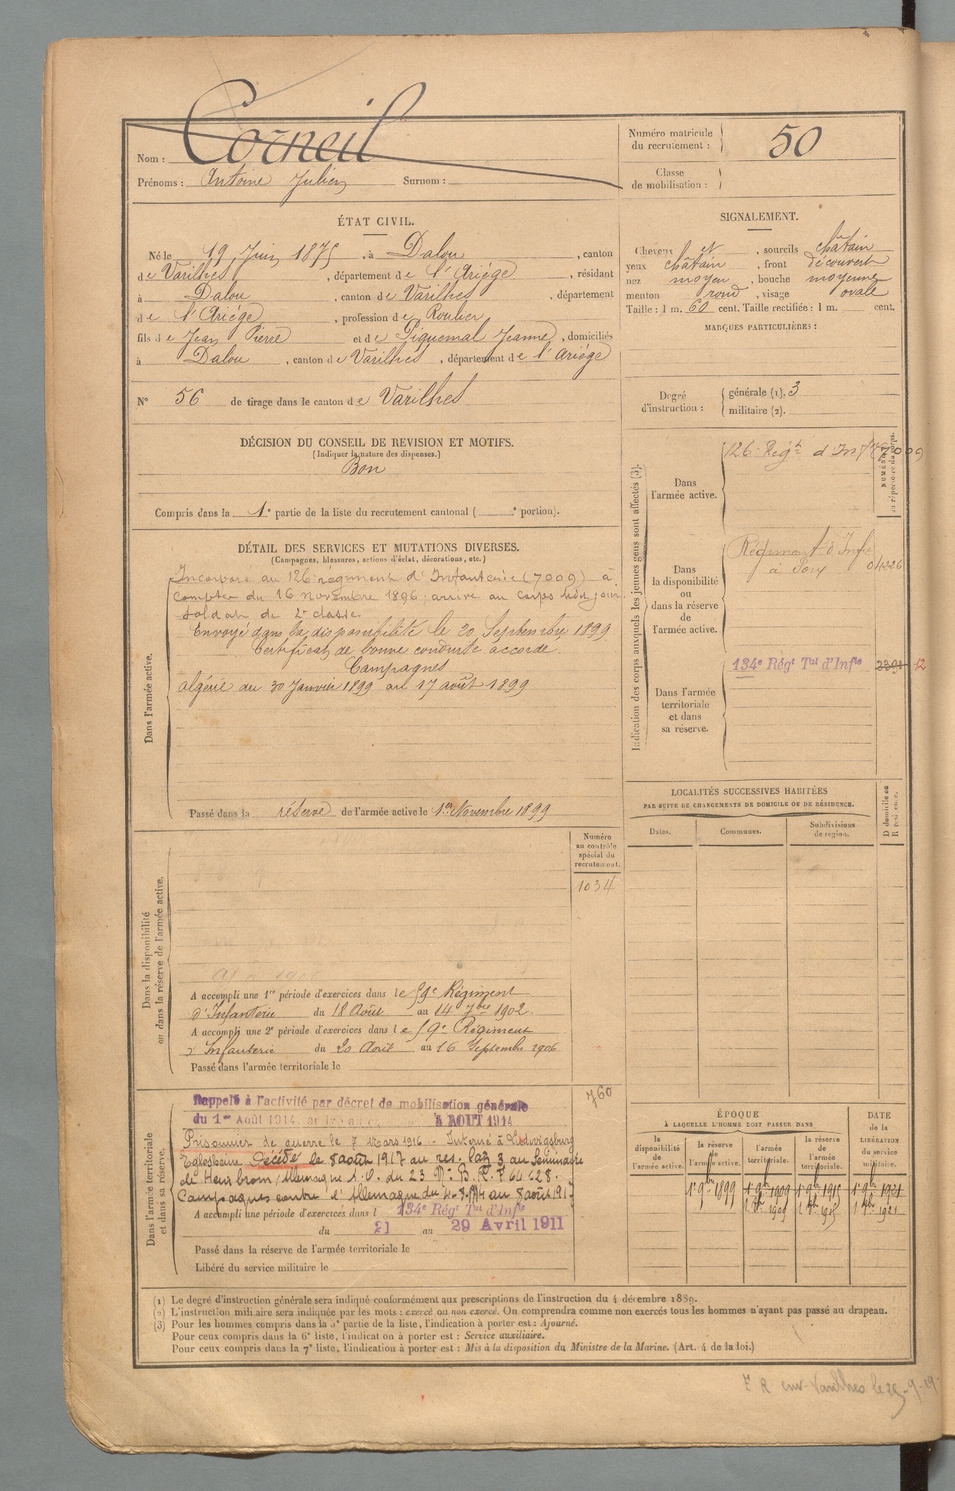 Nom : Corneil
Prénoms : Antoine Julien Surnom :
Numéro matricule du recrutement : 50
Classe de mobilisation :
ÉTAT CIVIL.
Né le 19 Juin 1875, à Dalou, canton
de Varilhes, département de l'Ariége, résidant
à Dalou, canton de Varilhes, département
de l'Ariége, profession de Roulier
fils de Jean Pierre et de Piquemal Jeanne, domiciliés
à Dalou, canton de Varilhes, département de l'Ariége
N° 56 de tirage dans le canton de Varilhes
SIGNALEMENT.
Cheveux et, sourcils châtain
yeux châtain, front découvert
nez moyen, bouche moyenne
menton rond, visage ovale
Taille : 1 m. 60 cent. Taille rectifiée : 1 m. cent.
MARQUES PARTICULIÈRES :
Degré d'instruction : générale (1). 3
militaire (2).
DÉCISION DU CONSEIL DE REVISION ET MOTIFS.
(Indiquer la nature des dispenses.)
Bon
Compris dans la 1e partie de la liste du recrutement cantonal ( e portion).
DÉTAIL DES SERVICES ET MUTATIONS DIVERSES.
(Campagnes, blessures, actions d'éclat, décorations, etc.)
Dans l'armée active.
Incorporé au 126e régiment d'Infanterie (7009) à
compter du 16 novembre 1896; arrivé au corps ledit jour
soldat de 2e classe.
Envoyé dans la disponibilité le 20 Septembre 1899
Certificat de bonne conduite accordé.
Campagnes
Algérie du 30 Janvier 1899 au 17 août 1899
Passé dans la réserve de l'armée active le 1er Novembre 1899
Indication des corps auxquels les jeunes gens sont affectés (3).
Dans l'armée active.
126e Régt d'Infie 7009
Dans la disponibilité ou dans la réserve de l'armée active.
Régiment d'Infie
à Foix 04226
Dans l'armée territoriale et dans sa réserve.
134e Régt Tal d'Infie 12
LOCALITÉS SUCCESSIVES HABITÉES
PAR SUITE DE CHANGEMENTS DE DOMICILE OU DE RÉSIDENCE.
Dates. Communes. Subdivisions de région. D domicile ou R résidence.
Dans la disponibilité ou dans la réserve de l'armée active.
Numéro au contrôle spécial du recrutement.
1034
A accompli une 1re période d'exercices dans le 59e Régiment
d'Infanterie du 18 Août au 14 7bre 1902.
A accompli une 2e période d'exercices dans le 59e Régiment
d'Infanterie du 20 Août au 16 Septembre 1906
Passé dans l'armée territoriale le
Dans l'armée territoriale et dans sa réserve.
760
Rappelé à l'activité par décret de mobilisation générale
du 1er Août 1914. 4 AOUT 1914
Prisonnier de guerre le 7 Mars 1916 - Interné à Ludwigsburg
Eglosheim Décédé le 8 août 1917 au res. laz 3 au Séminaire
de Heilbronn, Allemagne
Campagnes contre l'Allemagne du 4-8-14 au 8 août 1917
A accompli une période d'exercices dans l 134e Régt Tal d'Infie
du 21 au 29 Avril 1911
Passé dans la réserve de l'armée territoriale le
Libéré du service militaire le
ÉPOQUE
À LAQUELLE L'HOMME DOIT PASSER DANS
la disponibilité de l'armée active. la réserve de l'armée active. l'armée territoriale. la réserve de l'armée territoriale.
DATE de la LIBÉRATION du service militaire.
1er 9bre 1899 1er 9bre 1909 1er 9bre 1915 1er 9bre 1921
(1) Le degré d'instruction générale sera indiqué conformément aux prescriptions de l'instruction du 4 décembre 1889.
(2) L'instruction militaire sera indiquée par les mots : exercé ou non exercé. On comprendra comme non exercés tous les hommes n'ayant pas passé au drapeau.
(3) Pour les hommes compris dans la 5e partie de la liste, l'indication à porter est : Ajourné.
Pour ceux compris dans la 6e liste, l'indication à porter est : Service auxiliaire.
Pour ceux compris dans la 7e liste, l'indication à porter est : Mis à la disposition du Ministre de la Marine. (Art. 4 de la loi.)